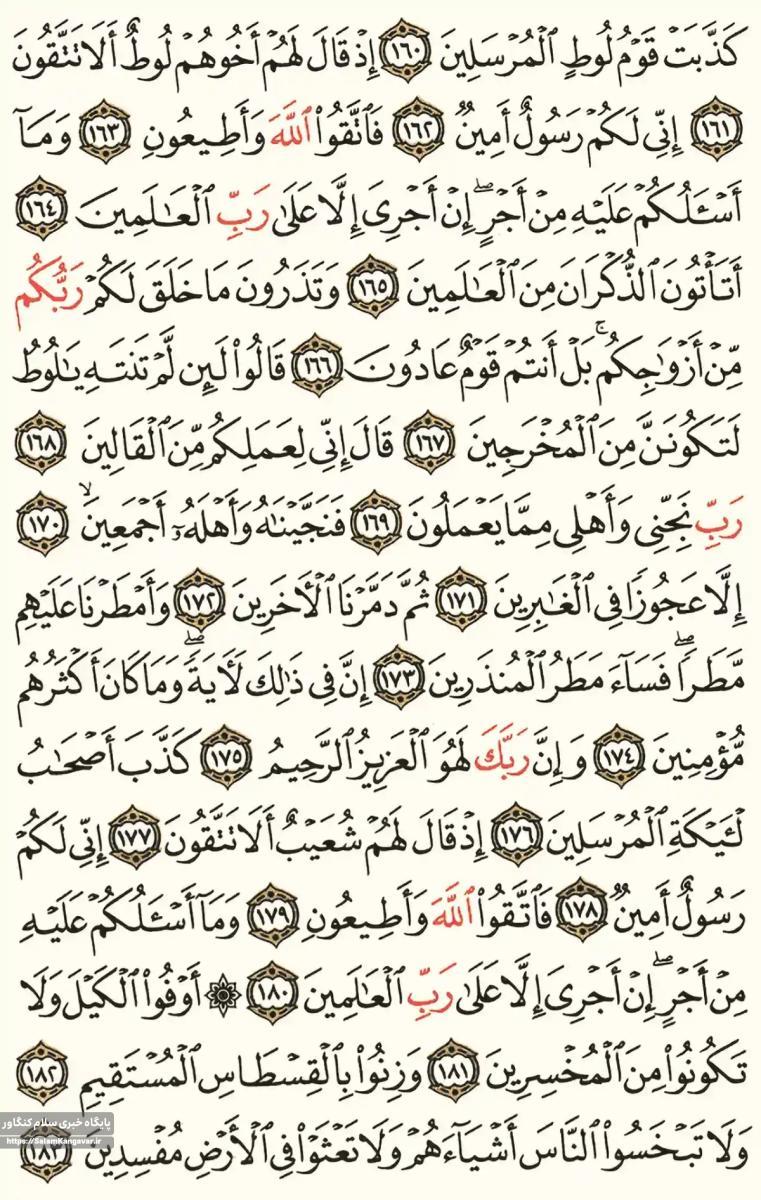 كَذَّبَتْ قَوْمُ لُوطٍ ٱلْمُرْسَلِينَ ١٦٠ إِذْ قَالَ لَهُمْ أَخُوهُمْ لُوطٌ أَلَا تَتَّقُونَ
١٦١ إِنِّى لَكُمْ رَسُولٌ أَمِينٌ ١٦٢ فَٱتَّقُوا۟ ٱللَّهَ وَأَطِيعُونِ ١٦٣ وَمَآ
أَسْـَٔلُكُمْ عَلَيْهِ مِنْ أَجْرٍ ۖ إِنْ أَجْرِىَ إِلَّا عَلَىٰ رَبِّ ٱلْعَـٰلَمِينَ ١٦٤
أَتَأْتُونَ ٱلذُّكْرَانَ مِنَ ٱلْعَـٰلَمِينَ ١٦٥ وَتَذَرُونَ مَا خَلَقَ لَكُمْ رَبُّكُم
مِّنْ أَزْوَٰجِكُم ۚ بَلْ أَنتُمْ قَوْمٌ عَادُونَ ١٦٦ قَالُوا۟ لَئِن لَّمْ تَنتَهِ يَـٰلُوطُ
لَتَكُونَنَّ مِنَ ٱلْمُخْرَجِينَ ١٦٧ قَالَ إِنِّى لِعَمَلِكُم مِّنَ ٱلْقَالِينَ ١٦٨
رَبِّ نَجِّنِى وَأَهْلِى مِمَّا يَعْمَلُونَ ١٦٩ فَنَجَّيْنَـٰهُ وَأَهْلَهُۥٓ أَجْمَعِينَ ۙ ١٧٠
إِلَّا عَجُوزًا فِى ٱلْغَـٰبِرِينَ ١٧١ ثُمَّ دَمَّرْنَا ٱلْـَٔاخَرِينَ ١٧٢ وَأَمْطَرْنَا عَلَيْهِم
مَّطَرًا ۖ فَسَآءَ مَطَرُ ٱلْمُنذَرِينَ ١٧٣ إِنَّ فِى ذَٰلِكَ لَـَٔايَةً ۖ وَمَا كَانَ أَكْثَرُهُم
مُّؤْمِنِينَ ١٧٤ وَإِنَّ رَبَّكَ لَهُوَ ٱلْعَزِيزُ ٱلرَّحِيمُ ١٧٥ كَذَّبَ أَصْحَـٰبُ
لْـَٔيْكَةِ ٱلْمُرْسَلِينَ ١٧٦ إِذْ قَالَ لَهُمْ شُعَيْبٌ أَلَا تَتَّقُونَ ١٧٧ إِنِّى لَكُمْ
رَسُولٌ أَمِينٌ ١٧٨ فَٱتَّقُوا۟ ٱللَّهَ وَأَطِيعُونِ ١٧٩ وَمَآ أَسْـَٔلُكُمْ عَلَيْهِ
مِنْ أَجْرٍ ۖ إِنْ أَجْرِىَ إِلَّا عَلَىٰ رَبِّ ٱلْعَـٰلَمِينَ ١٨٠ ۞ أَوْفُوا۟ ٱلْكَيْلَ وَلَا
تَكُونُوا۟ مِنَ ٱلْمُخْسِرِينَ ١٨١ وَزِنُوا۟ بِٱلْقِسْطَاسِ ٱلْمُسْتَقِيمِ ١٨٢
وَلَا تَبْخَسُوا۟ ٱلنَّاسَ أَشْيَآءَهُمْ وَلَا تَعْثَوْا۟ فِى ٱلْأَرْضِ مُفْسِدِينَ ١٨٣
پایگاه خبری سلام کنگاور
https://SalamKangavar.ir